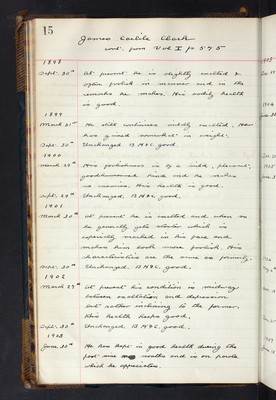 15
James Carlile Clark
cont. from Vol I p 575
1898
Sept. 30th At present he is slightly exalted &
often foolish in manner and in the
remarks he makes. His bodily health
is good.
1899
March 31st He still continues mildly exalted. Has
has gained somewhat in weight.
Sept. 30th Unchanged. B.H. &c. good.
1900
March 29th His foolishness is of a mild, pleasant,
goodhumoured kind and he makes
no enemies. His health is good.
Sept. 29th Unchanged. B.H. &c. good.
1901
March 30th At present he is exalted and when so
he generally gets stouter which is
especially marked in his face and
makes him look more foolish. His
characteristics are the same as formerly.
Sept. 30th Unchanged. B.H. &c. good.
1902
March 29th At present his condition is midway
between exaltation and depression
but rather inclining to the former.
His health keeps good.
Sept. 30th Unchanged. B.H. &c. good.
1903
June 30th He has kept in good health during the
past nine months and is on parole
which he appreciates.